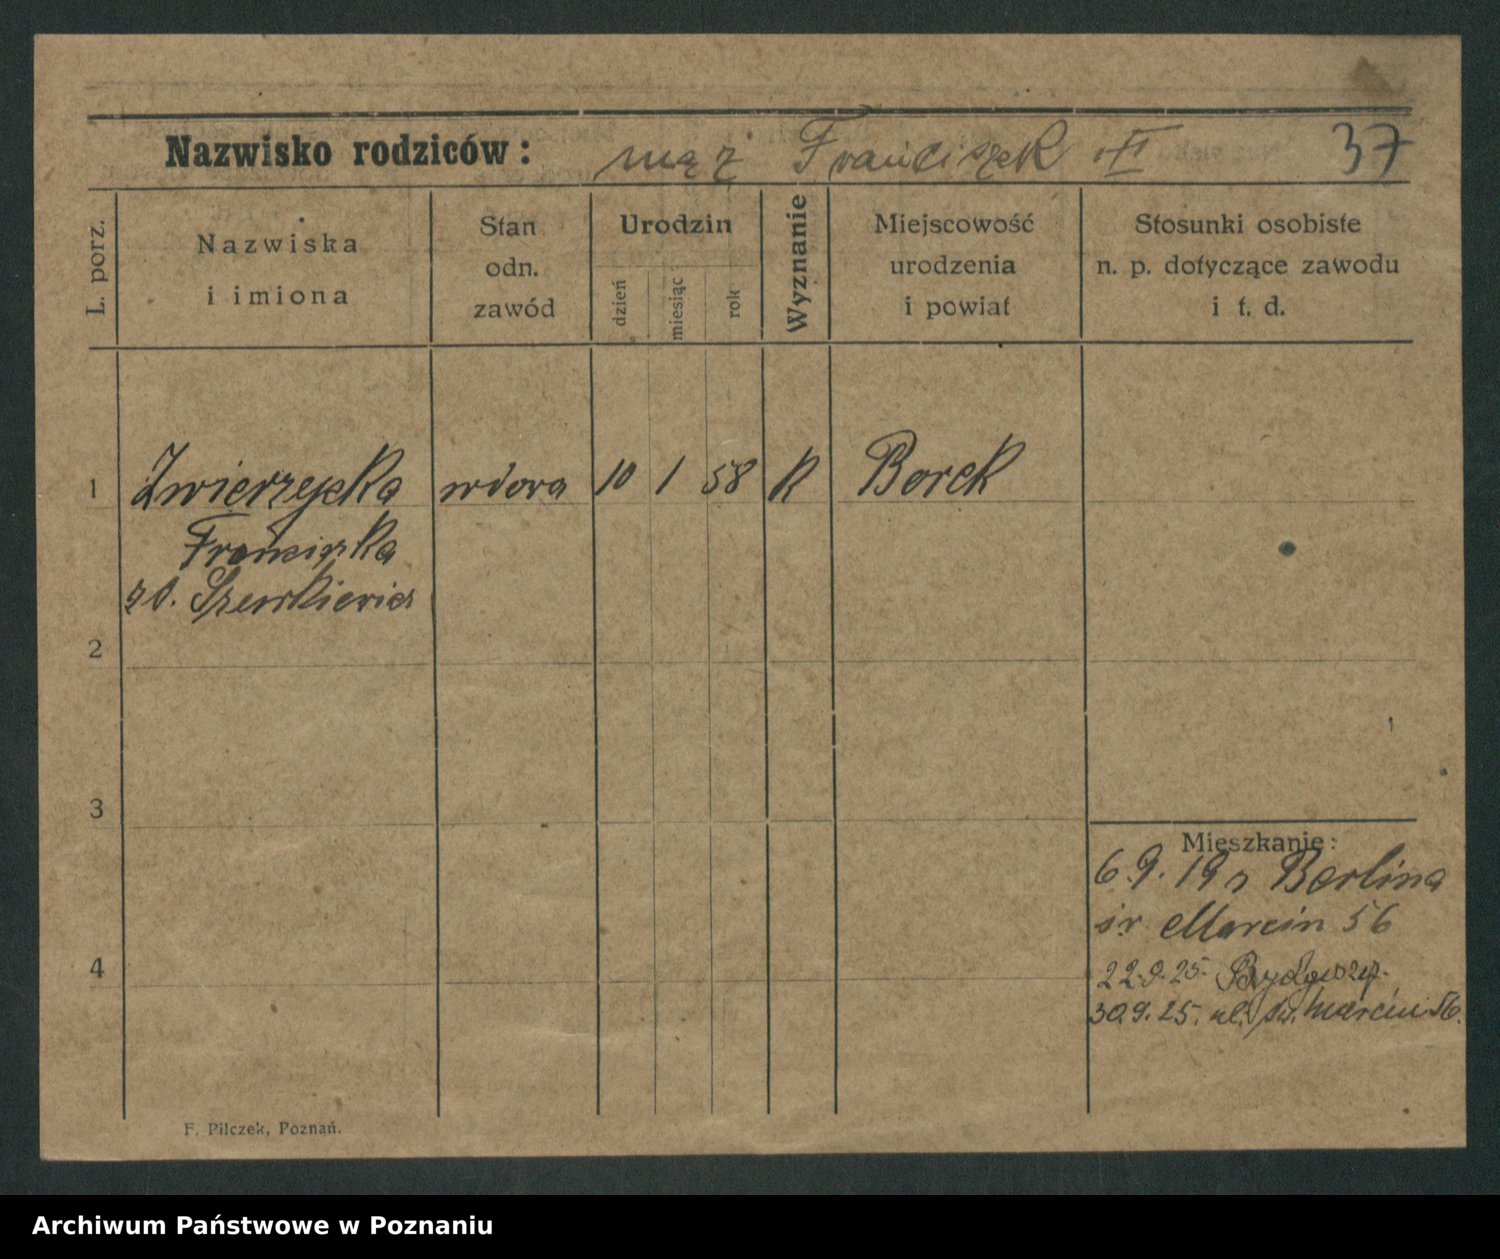 Nazwisko rodziców: mąż Franciszek 37
L. porz.
Nazwiska
i imiona
Stan
odn.
zawód
Urodzin
dzień
miesiąc
rok
Wyznanie
Miejscowość
urodzenia
i powiat
Stosunki osobiste
n. p. dotyczące zawodu
i t. d.
1 Zwierzycka wdowa 10 1 58 K Borek
Franciszka
zd. Szewkiewicz
2
3
Mieszkanie:
6.9.19 z Berlina
św Marcin 56
4
22.9.25. Bydgoszcz.
30.9.25. ul. Św. Marcin 56.
F. Pilczek, Poznań.
Archiwum Państwowe w Poznaniu